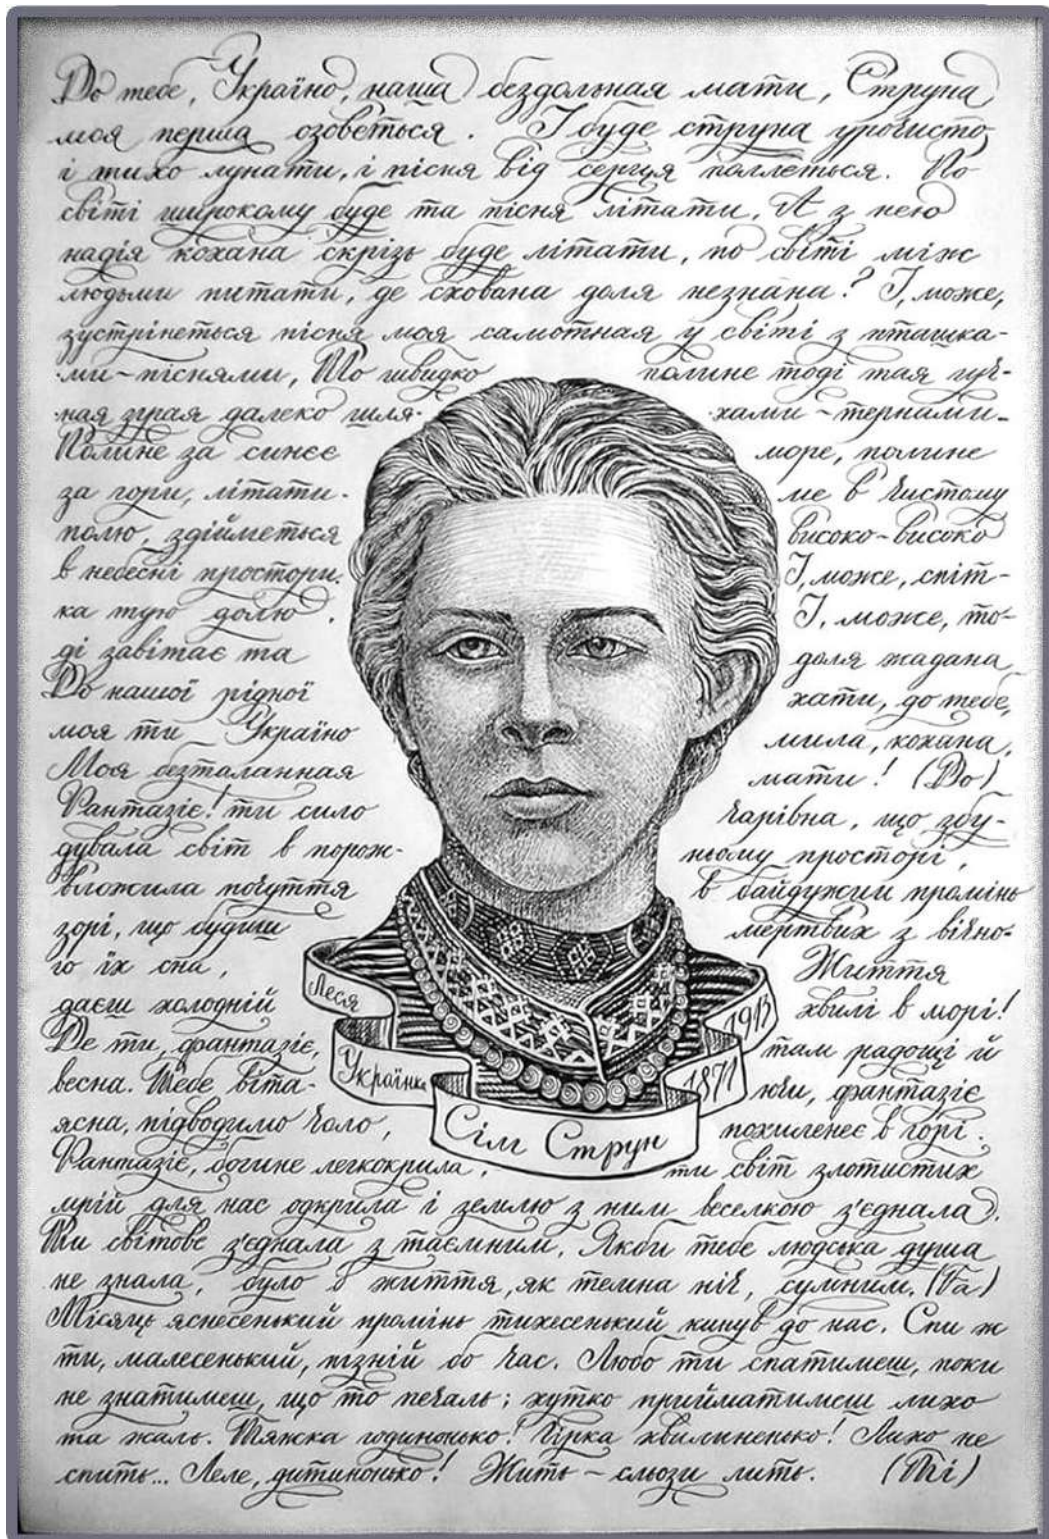 До тебе, Україно, наша бездольная мати, Струна
моя перша озоветься. І буде струна урочисто
і тихо лунати, і пісня від серця поллеться. По
світі широкому буде та пісня літати, А з нею
надія кохана скрізь буде літати, по світі між
людьми питати, де схована доля незнана? І, може,
зустрінеться пісня моя самотная у світі з пташка-
ми-піснями, То швидко полине тоді тая гуч-
ная зграя далеко шля- хами-тернами.
Полине за синєє море, полине
за гори, літати- ме в чистому
полю, здійметься високо-високо
в небесні простори. І, може, спіт-
ка тую долю. І, може, то-
ді завітає та доля жадана
До нашої рідної хати, до тебе,
моя ти Україно мила, кохана,
Моя безталанная мати! (До)
Фантазіє! ти сило чарівна, що збу-
дувала світ в порож- ньому просторі,
вложила почуття в байдужий промінь
зорі, що будиш мертвих з вічно-
го їх сна, Життя
даєш холодній хвилі в морі!
Де ти, фантазіє, там радощі й
весна. Тебе віта- ючи, фантазіє
ясна, підводимо чоло, похиленеє в горі.
Фантазіє, богине легкокрила, ти світ злотистих
мрій для нас одкрила і землю з ним веселкою з'єднала.
Ти світове з'єднала з таємним, Якби тебе людська душа
не знала, було б життя, як темна ніч, сумним. (Фа)
Місяць яснесенький промінь тихесенький кинув до нас. Спи ж
ти, малесенький, пізній бо час. Любо ти спатимеш, поки
не знатимеш, що то печаль; хутко прийматимеш лихо
та жаль. Тяжка годинонько! Гірка хвилиненько! Лихо не
спить... Леле, дитинонько! Жить – сльози лить. (Мі)
Леся
Українка
1871
1913
Сім Струн